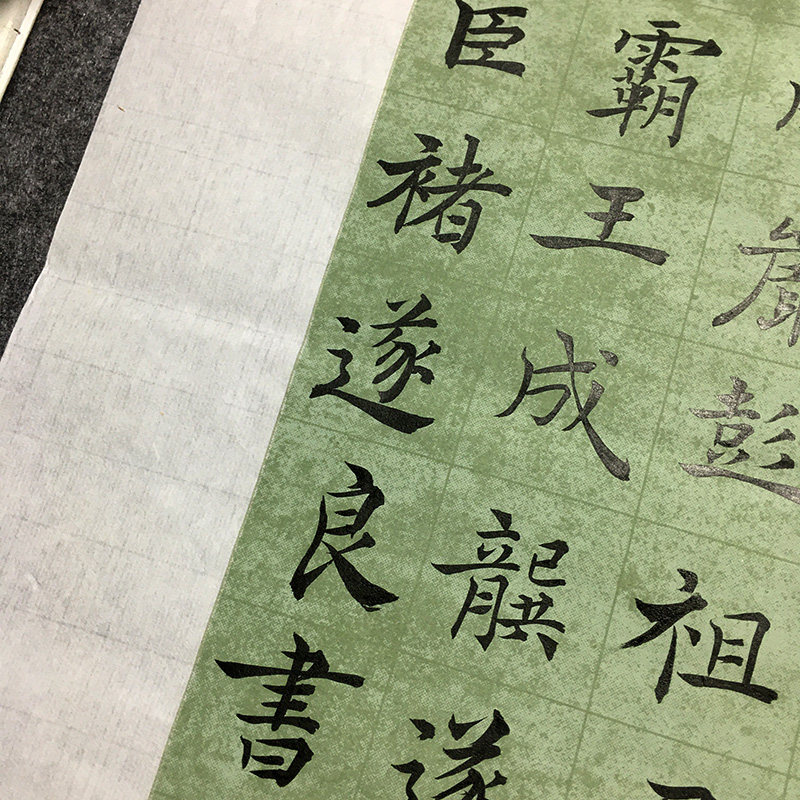 嚴彭祖
霸王成龔遂
臣褚遂良書